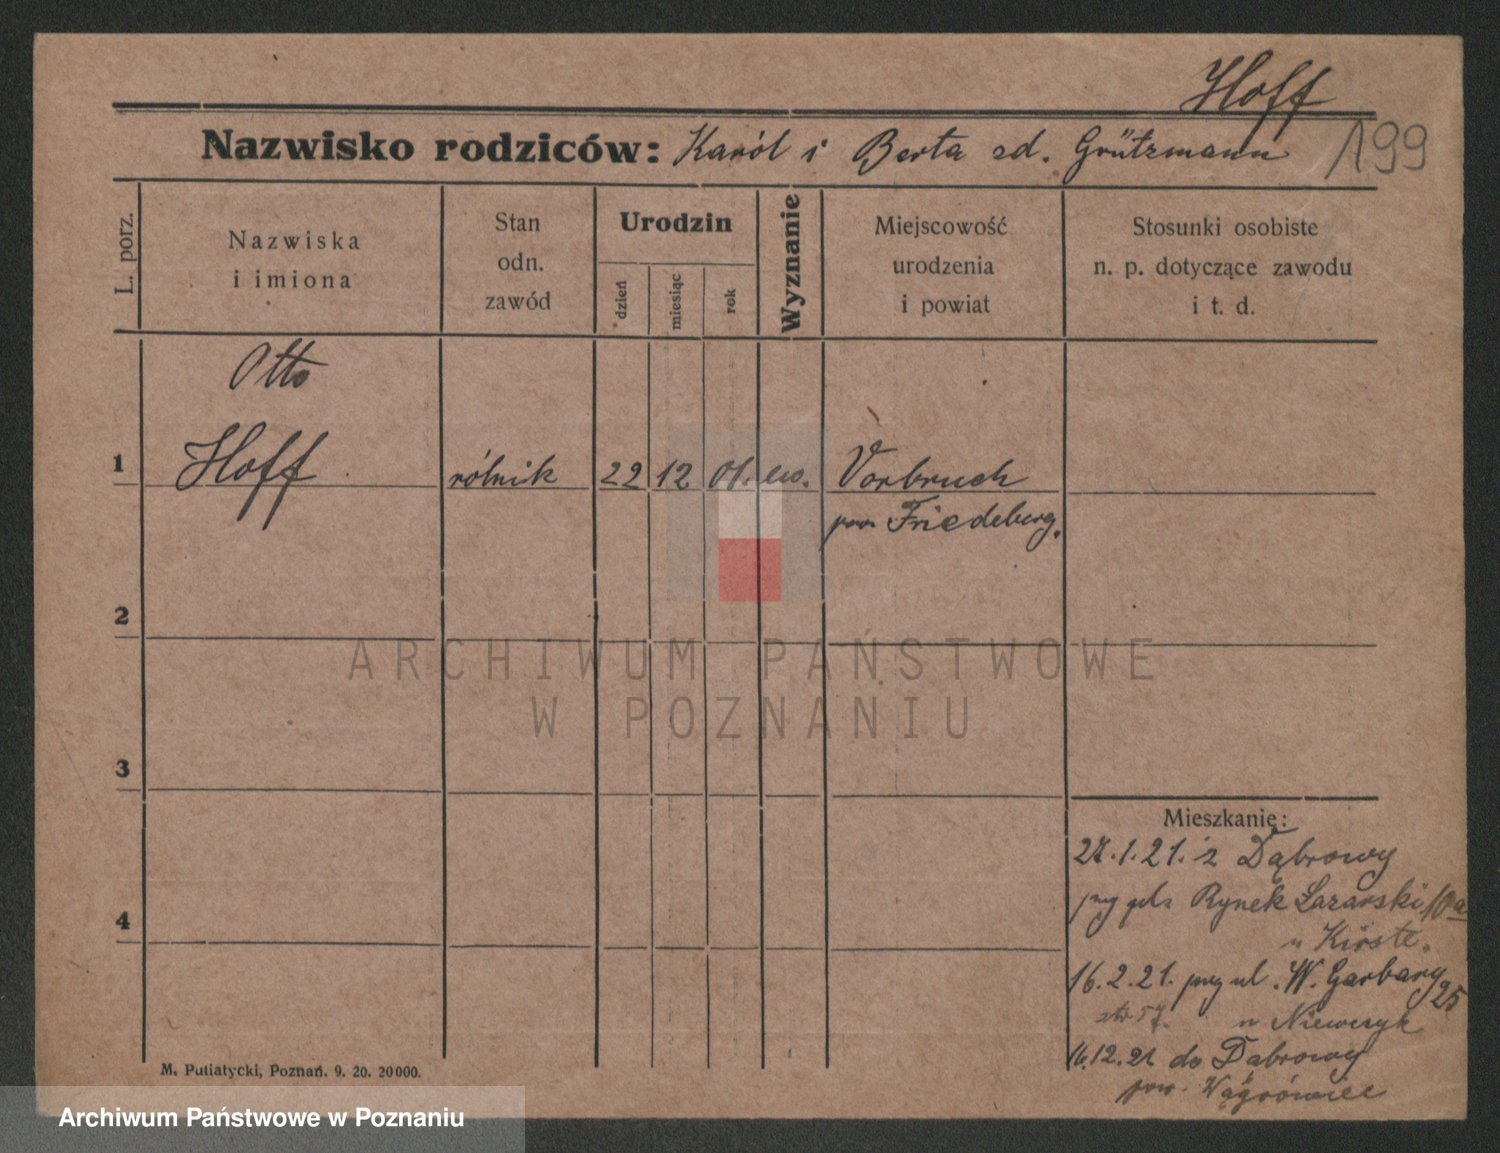 Hoff
Nazwisko rodziców: Karól i Berta zd. Grützmann
199
L. porz.
Nazwiska
i imiona
Stan
odn.
zawód
Urodzin
dzień
miesiąc
rok
Wyznanie
Miejscowość
urodzenia
i powiat
Stosunki osobiste
n. p. dotyczące zawodu
i t. d.
Otto
1 Hoff rólnik 22 12 01. ew. Vorbruch
pow. Friedeberg.
2
ARCHIWUM PAŃSTWOWE
W POZNANIU
3
Mieszkanie:
.1.21. z Dąbrowy
przy Rynek Łazarski 10a
u Kirste.
4
16.2.21. przy ul. W. Garbary 25
u Niewczyk
16.12.21 do Dąbrowy
pow. Wągrówiec
M. Putiatycki, Poznań. 9. 20. 20000.
Archiwum Państwowe w Poznaniu